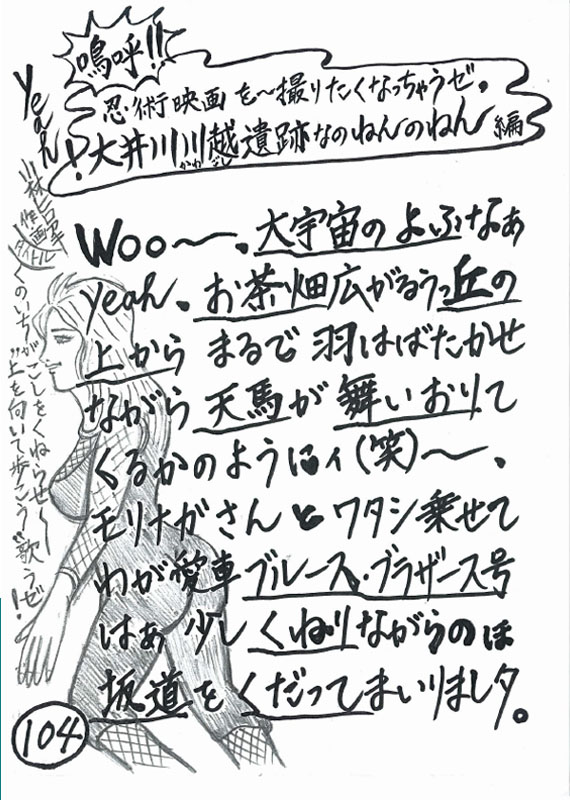 嗚呼!!
忍術映画を〜撮りたくなっちゃうゼ。
大井川川越遺跡なのねんのねん編
かわごし
Yeah!
作画タイトル
くのいちがこしをくねらせ〜
"上を向いて歩こう"歌うゼ!
Woo〜、大宇宙のよふなぁ
yeah、お茶畑広がるぅっ丘の
上からまるで羽はばたかせ
ながら天馬が舞いおりて
くるかのようにィ(笑)〜、
モリナガさんとワタシ乗せて
わが愛車ブルース・ブラザース号
はぁ少しくねりながらのほ
坂道をくだってまいりましタ。
104